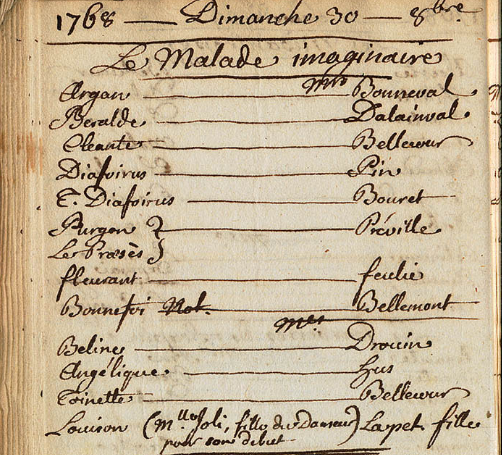 1768 — Dimanche 30 — 8bre
Le Malade imaginaire
Mrs
Argan — Bonneval
Beralde — Dalainval
Cleante — Bellecour
Diafoirus — Pin
T. Diafoirus — Bouret
Purgon } — Préville
Le Præsès }
fleurant — feulie
Bonnefoi Not. — Bellemont
Mes
Beline — Drouin
Angélique — hus
Toinette — Bellecour
Louison (Mlle Joli, fille du Danseur) La pet. fille
pour son debut